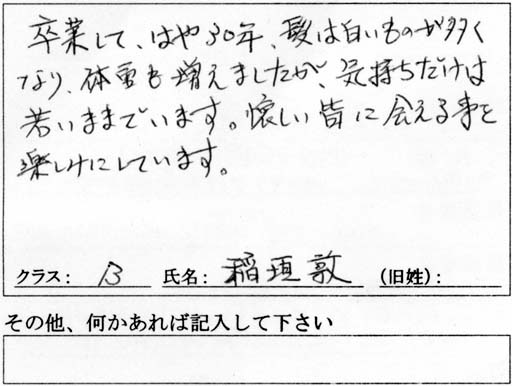 卒業して、はや30年、髪は白いものが多く
なり、体重も増えましたが、気持ちだけは
若いままでいます。懐しい皆に会える事を
楽しみにしています。
クラス： B 氏名： 稲垣敦 （旧姓）：
その他、何かあれば記入して下さい